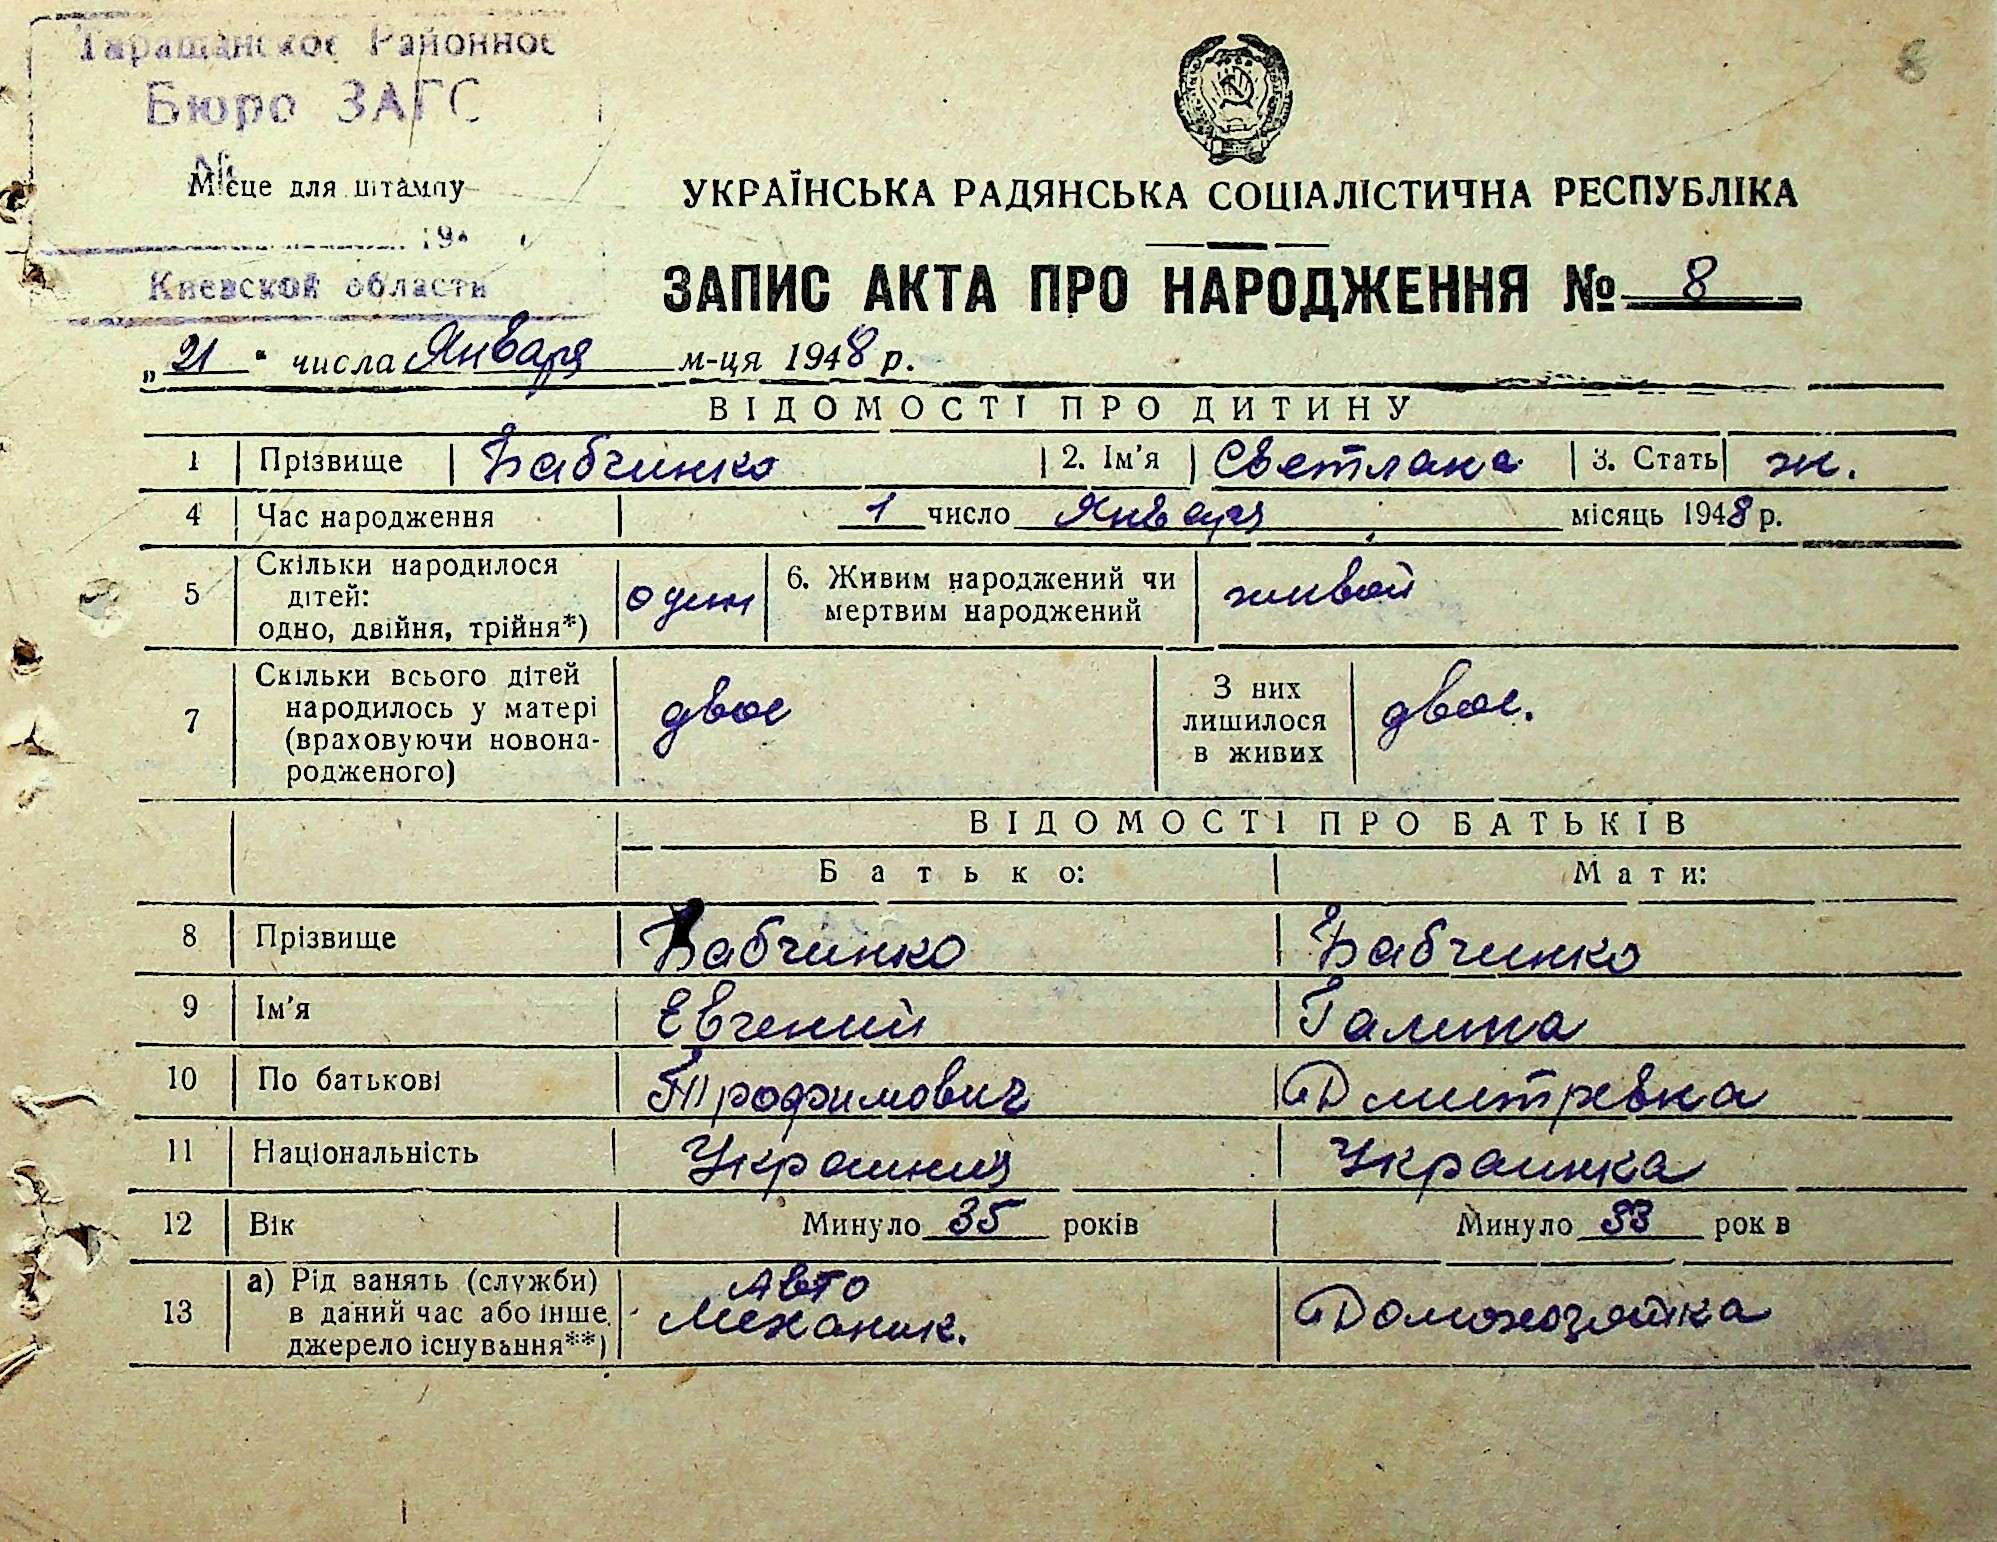 Таращанское Районное
Бюро ЗАГС
№
Місце для штампу
194
Киевской области
8
УКРАЇНСЬКА РАДЯНСЬКА СОЦІАЛІСТИЧНА РЕСПУБЛІКА
ЗАПИС АКТА ПРО НАРОДЖЕННЯ № 8
„21“ числа Января м-ця 1948 р.
ВІДОМОСТІ ПРО ДИТИНУ
1 Прізвище Бабчинко 2. Ім'я Светлана 3. Стать ж.
4 Час народження 1 число Января місяць 1948 р.
5 Скільки народилося дітей: одно, двійня, трійня*) один 6. Живим народжений чи мертвим народжений живой
7 Скільки всього дітей народилось у матері (враховуючи новонародженого) двое З них лишилося в живих двое.
ВІДОМОСТІ ПРО БАТЬКІВ
Батько: Мати:
8 Прізвище Бабчинко Бабчинко
9 Ім'я Евгений Галина
10 По батькові Трофимович Дмитревна
11 Національність Украинец Украинка
12 Вік Минуло 35 років Минуло 33 рок в
13 а) Рід занять (служби) в даний час або інше джерело існування**) Авто Механик. Домохозяйка